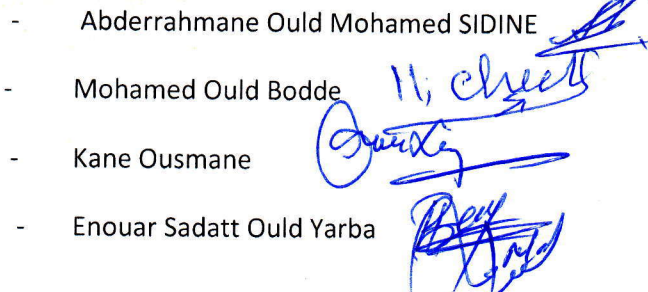 - Abderrahmane Ould Mohamed SIDINE
- Mohamed Ould Bodde
- Kane Ousmane
- Enouar Sadatt Ould Yarba